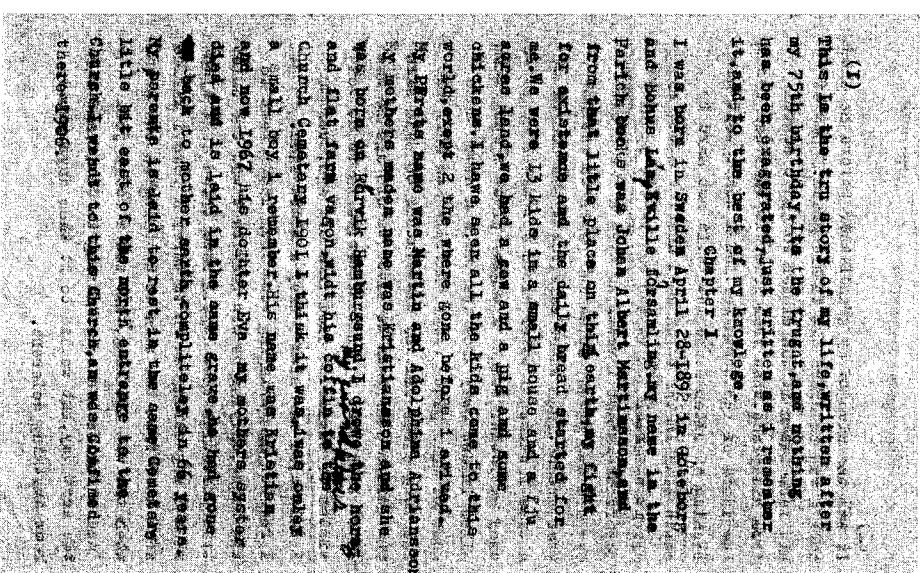 (I)
This is the tru story of my life,written after
my 75th birthday.Its the trught,and nothing
has been exagerated,just written as i remember
it,and to the best of my knowlege.
Chapter I
I was born in Sweden April 28-1892 in Goteborg
and Bohus Län,Kville församling,my name in the
Parich books was Johan Albert Martinsson,and
from that litle place on this earth,my fight
for existense and the daily bread started for
me.We were 13 kids in a small house and a fju
acres land,we had a cow and a pig and some
chickens.I hawe seen all the kids come to this
world,exept 2 the where gone before i arived.
My Farets name was Martin and Adolphina Adriansson
My mothers maden name was Kristiansson and she
was born on Rörvik Hamburgsund.I drowe the horse
and flat farm vagon,widt his coffin to the
Church Cemetary 1901 I think it was,Iwas onley
a small boy i remember.His name was Kristian
and now 1967 his dorhter Eva my mothers syster
died and is laid in the same grave,he had gone
back to mother earth,compliteley in 66 years.
My parents is laid to rest in the same Cemetery
litle bit east of the north entrange to the
Church.I webnt to this Church,an was Confimed
there 1906.